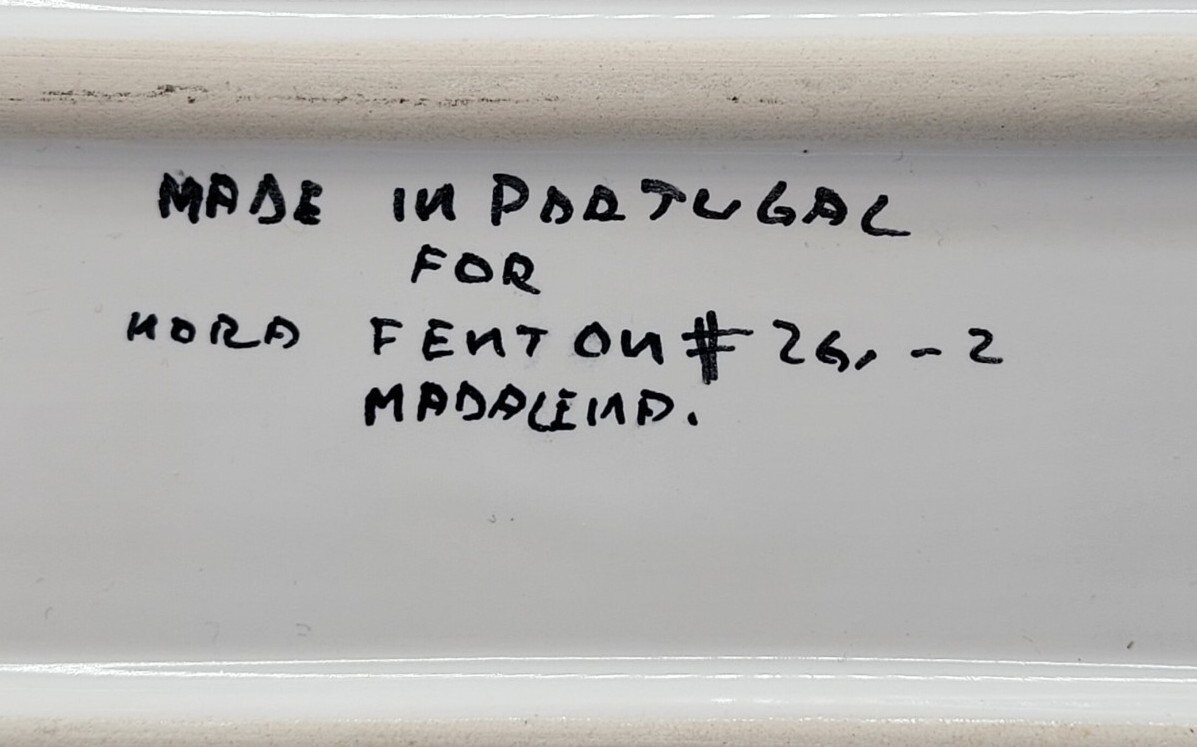 MADE IN PORTUGAL
FOR
NORA FENTON # 26, - 2
MADALENA.